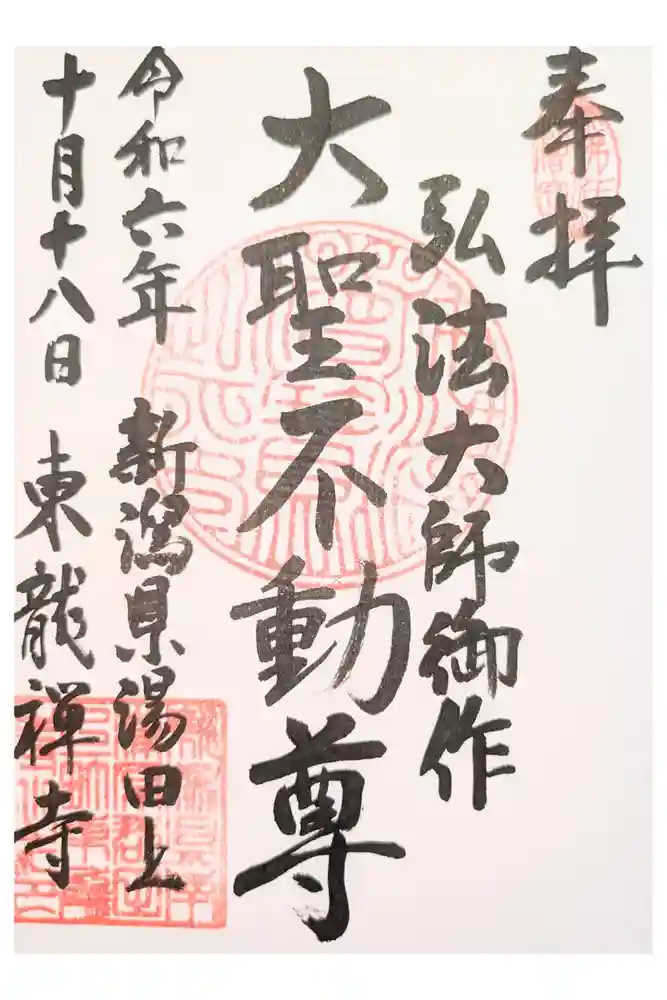 奉拝
弘法大師御作
大聖不動尊
令和六年 新潟県湯田上
十月十八日 東龍禅寺